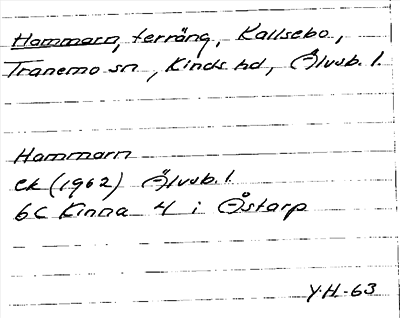 Hammarn, terräng, Kallsebo,
Tranemo sn, Kinds hd, Älvsb. l.
Hammarn
ek (1962) Älvsb. l
6C Kinna 4 i Östarp
Y.H.-63